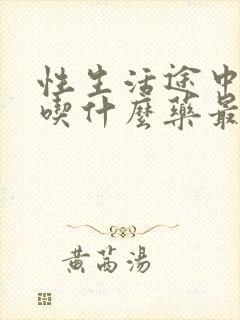 性生活途中
喫什麼藥最
黄芮湯